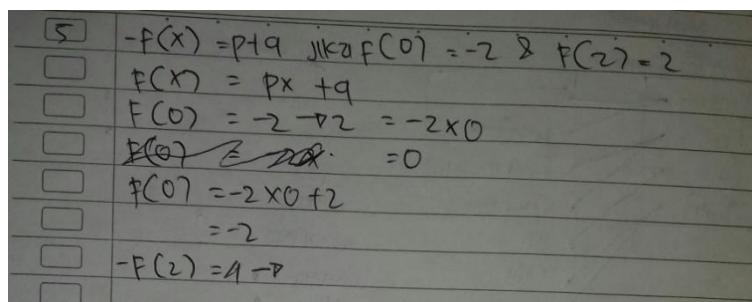 5 -F(x) = p+q Jika F(0) = -2 & F(2) = 2
F(x) = px + q
F(0) = -2 → 2 = -2 x 0
= 0
F(0) = -2 x 0 + 2
= -2
-F(2) = 4 →